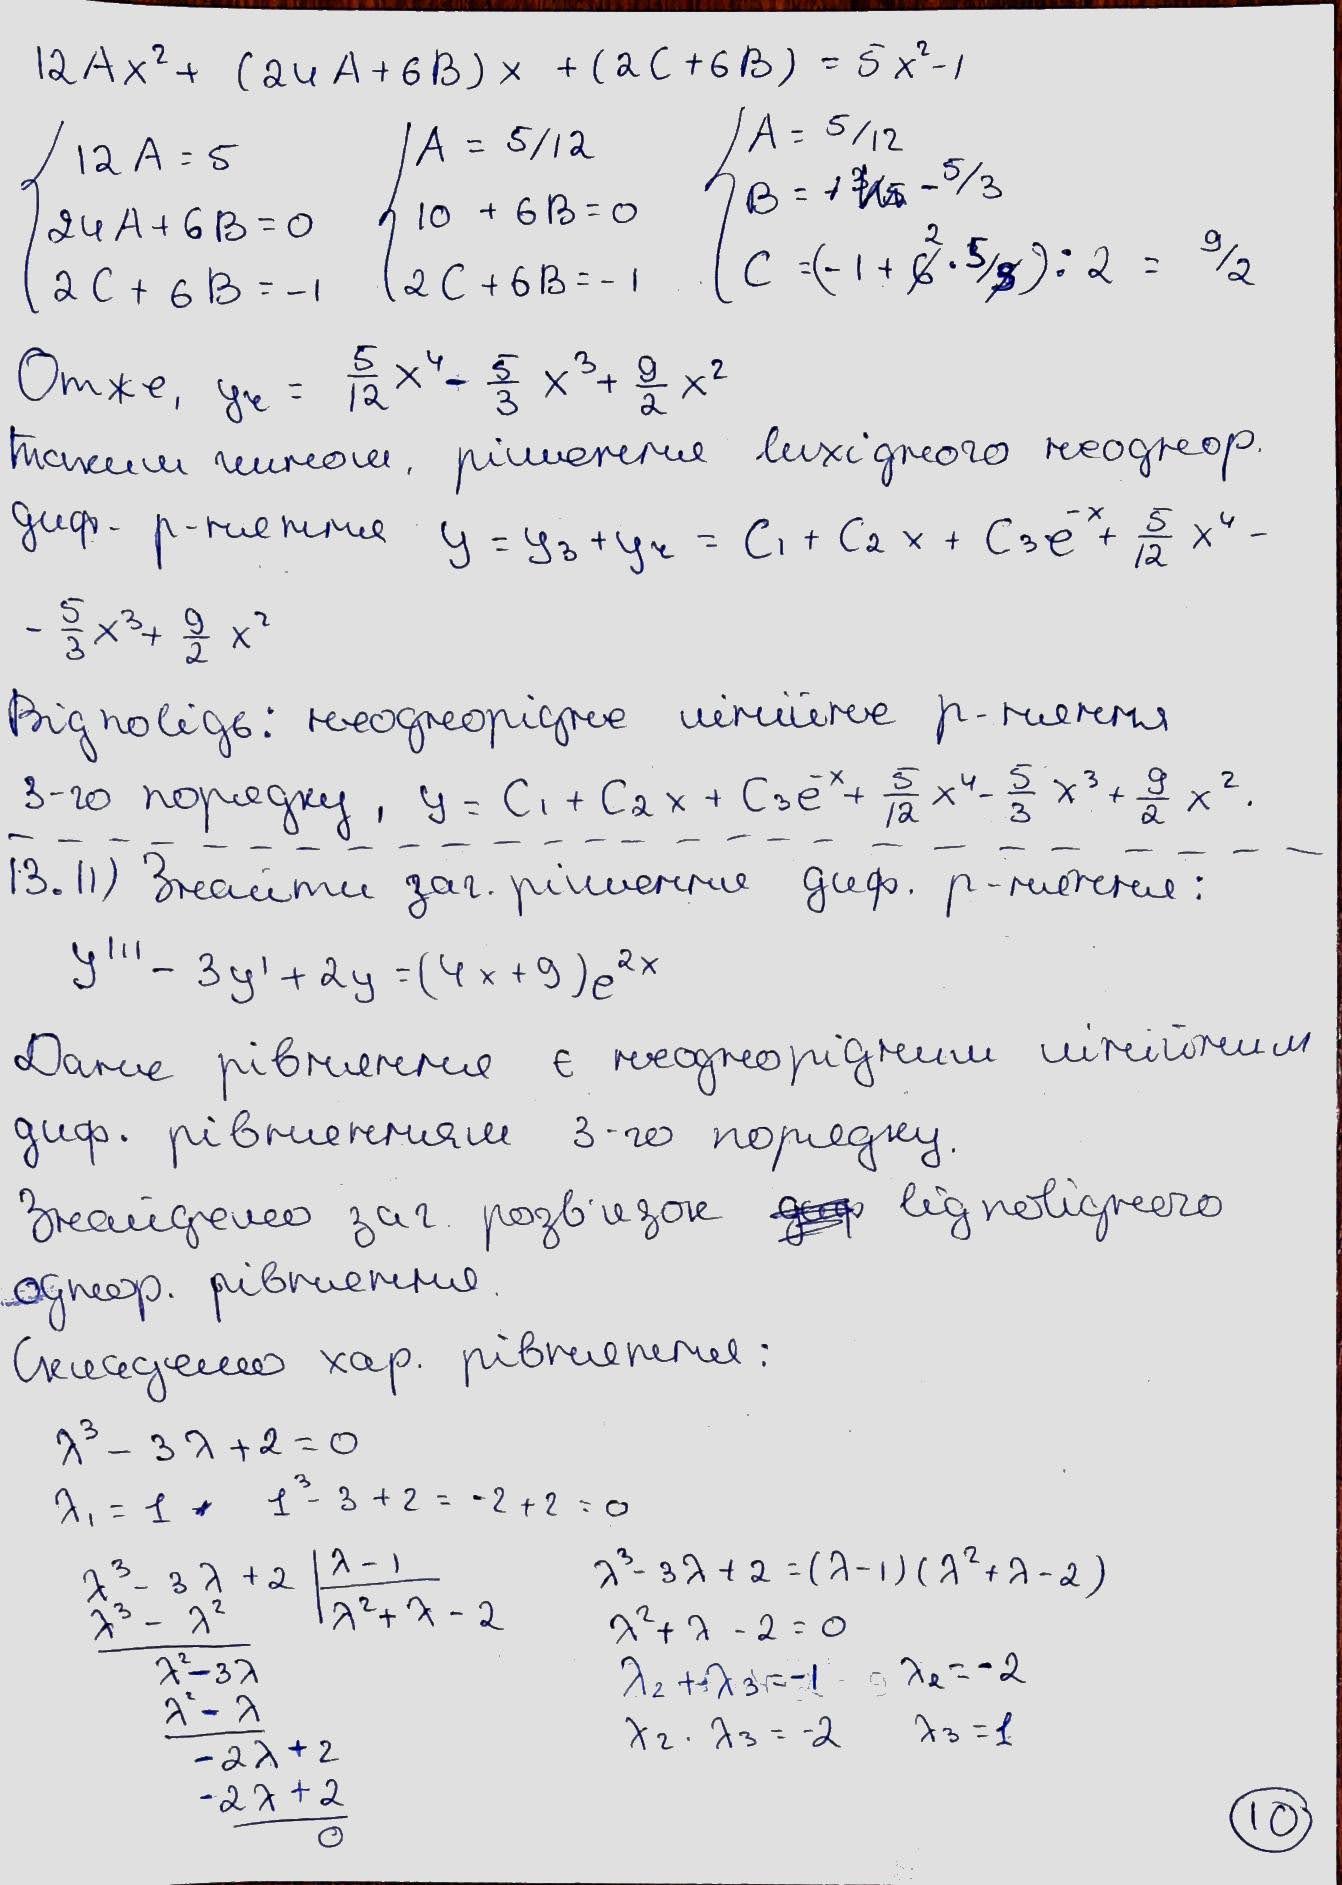 12Ax² + (24A+6B)x + (2C+6B) = 5x²-1
{ 12A = 5 { A = 5/12 { A = 5/12
24A+6B=0 10 + 6B=0 B = -5/3
2C+6B=-1 2C+6B=-1 C =(-1+6²·5/3):2 = 9/2
Отже, yч = 5/12 x⁴ - 5/3 x³ + 9/2 x²
Таким чином, рішення вихідного неоднор.
диф. р-няння y = yз + yч = C₁ + C₂x + C₃e⁻ˣ + 5/12 x⁴ -
- 5/3 x³ + 9/2 x²
Відповідь: неоднорідне лінійне р-няння
3-го порядку, y = C₁ + C₂x + C₃e⁻ˣ + 5/12 x⁴ - 5/3 x³ + 9/2 x².
13.11) Знайти заг. рішення диф. р-няння:
y''' - 3y' + 2y = (4x+9)e²ˣ
Дане рівняння є неоднорідним лінійним
диф. рівнянням 3-го порядку.
Знайдемо заг. розв'язок відповідного
однор. рівняння.
Складемо хар. рівняння:
λ³ - 3λ + 2 = 0
λ₁ = 1 1³ - 3 + 2 = -2 + 2 = 0
λ³ - 3λ + 2 | λ - 1 λ³ - 3λ + 2 = (λ-1)(λ²+λ-2)
λ³ - λ² | λ² + λ - 2 λ² + λ - 2 = 0
λ² - 3λ λ₂ + λ₃ = -1 λ₂ = -2
λ² - λ λ₂ · λ₃ = -2 λ₃ = 1
-2λ + 2
-2λ + 2
0
10